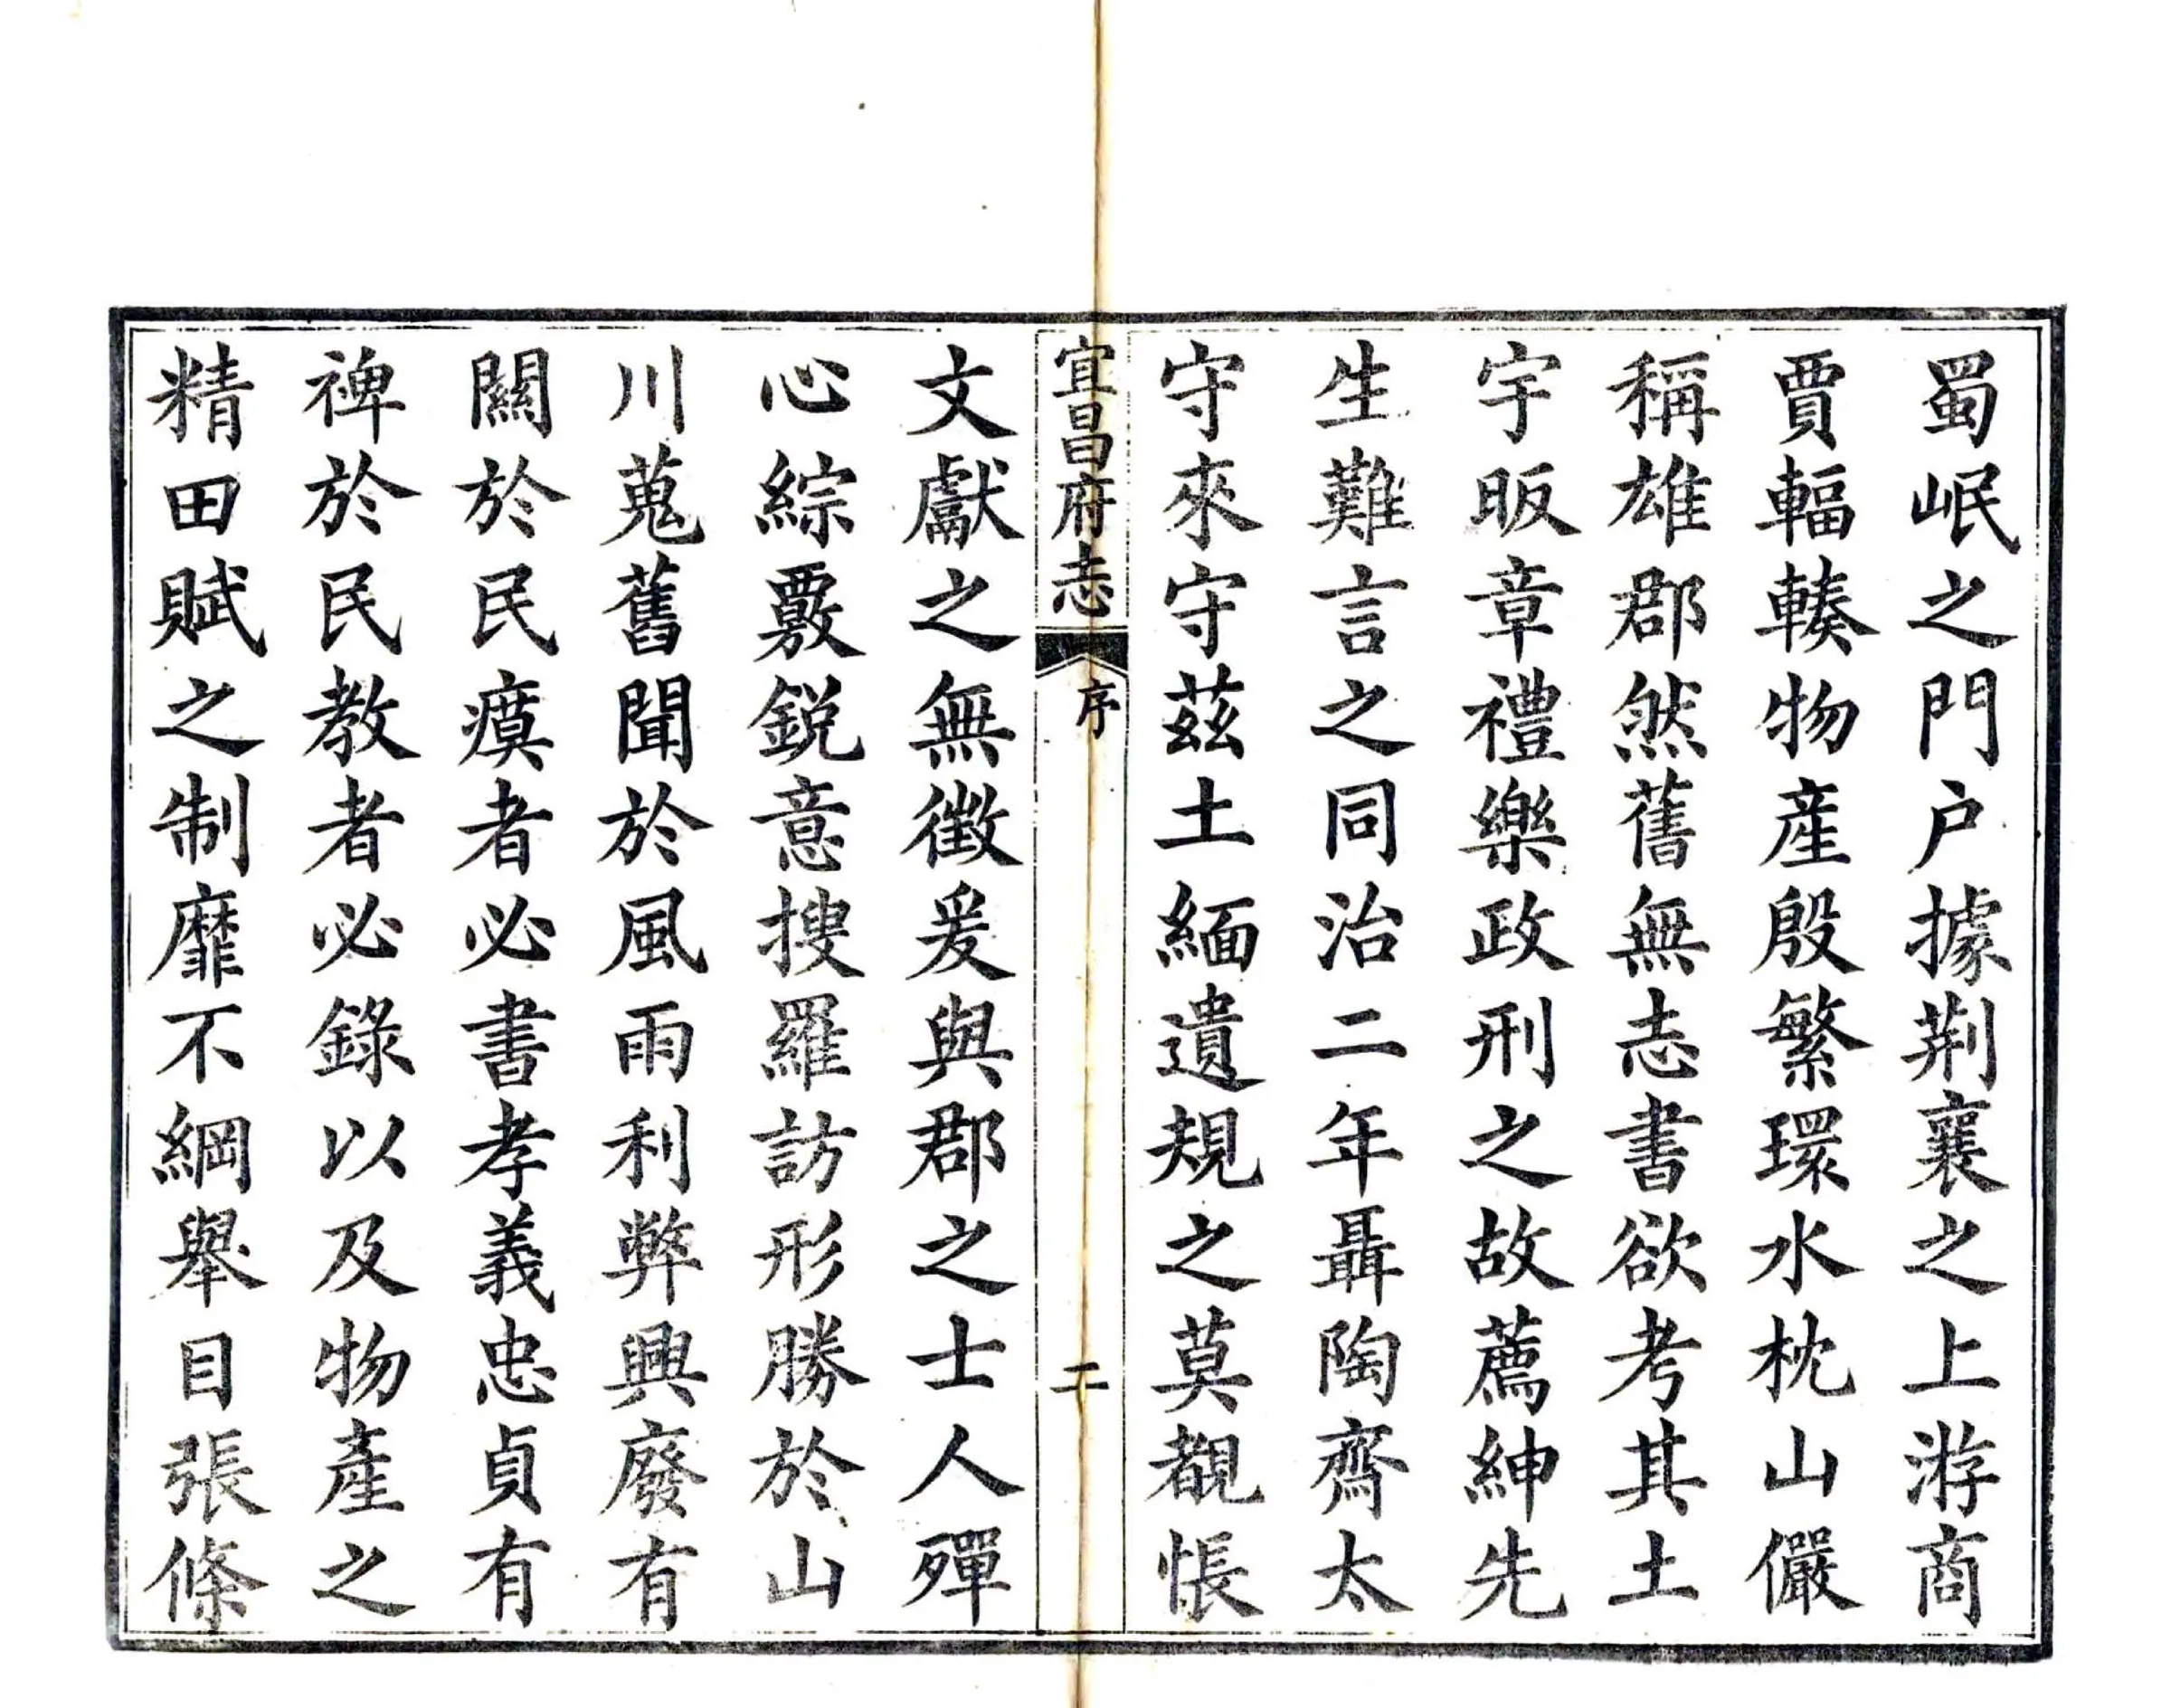 蜀岷之門户據荆襄之上游商
賈輻輳物産殷繁環水枕山儼
稱雄郡然舊無志書欲考其土
宇昄章禮樂政刑之故薦紳先
生難言之同治二年聶陶齋太
守來守茲土緬遺規之莫覩悵
宜昌府志 序 二
文獻之無徵爰與郡之士人殫
心綜覈銳意搜羅訪形勝於山
川蒐舊聞於風雨利弊興廢有
關於民瘼者必書孝義忠貞有
禆於民教者必錄以及物產之
精田賦之制靡不綱舉目張條